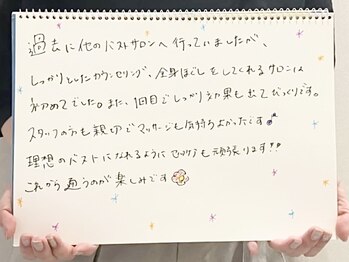 過去に他のバストサロンへ行っていましたが、
しっかりとしたカウンセリング、全身ほぐしをしてくれるサロンは
初めてでした。また、1回目でしっかり効果も出てびっくりです。
スタッフの方も親切でマッサージも気持ちよかったです
理想のバストになれるように も頑張ります!!
これから通うのが楽しみです